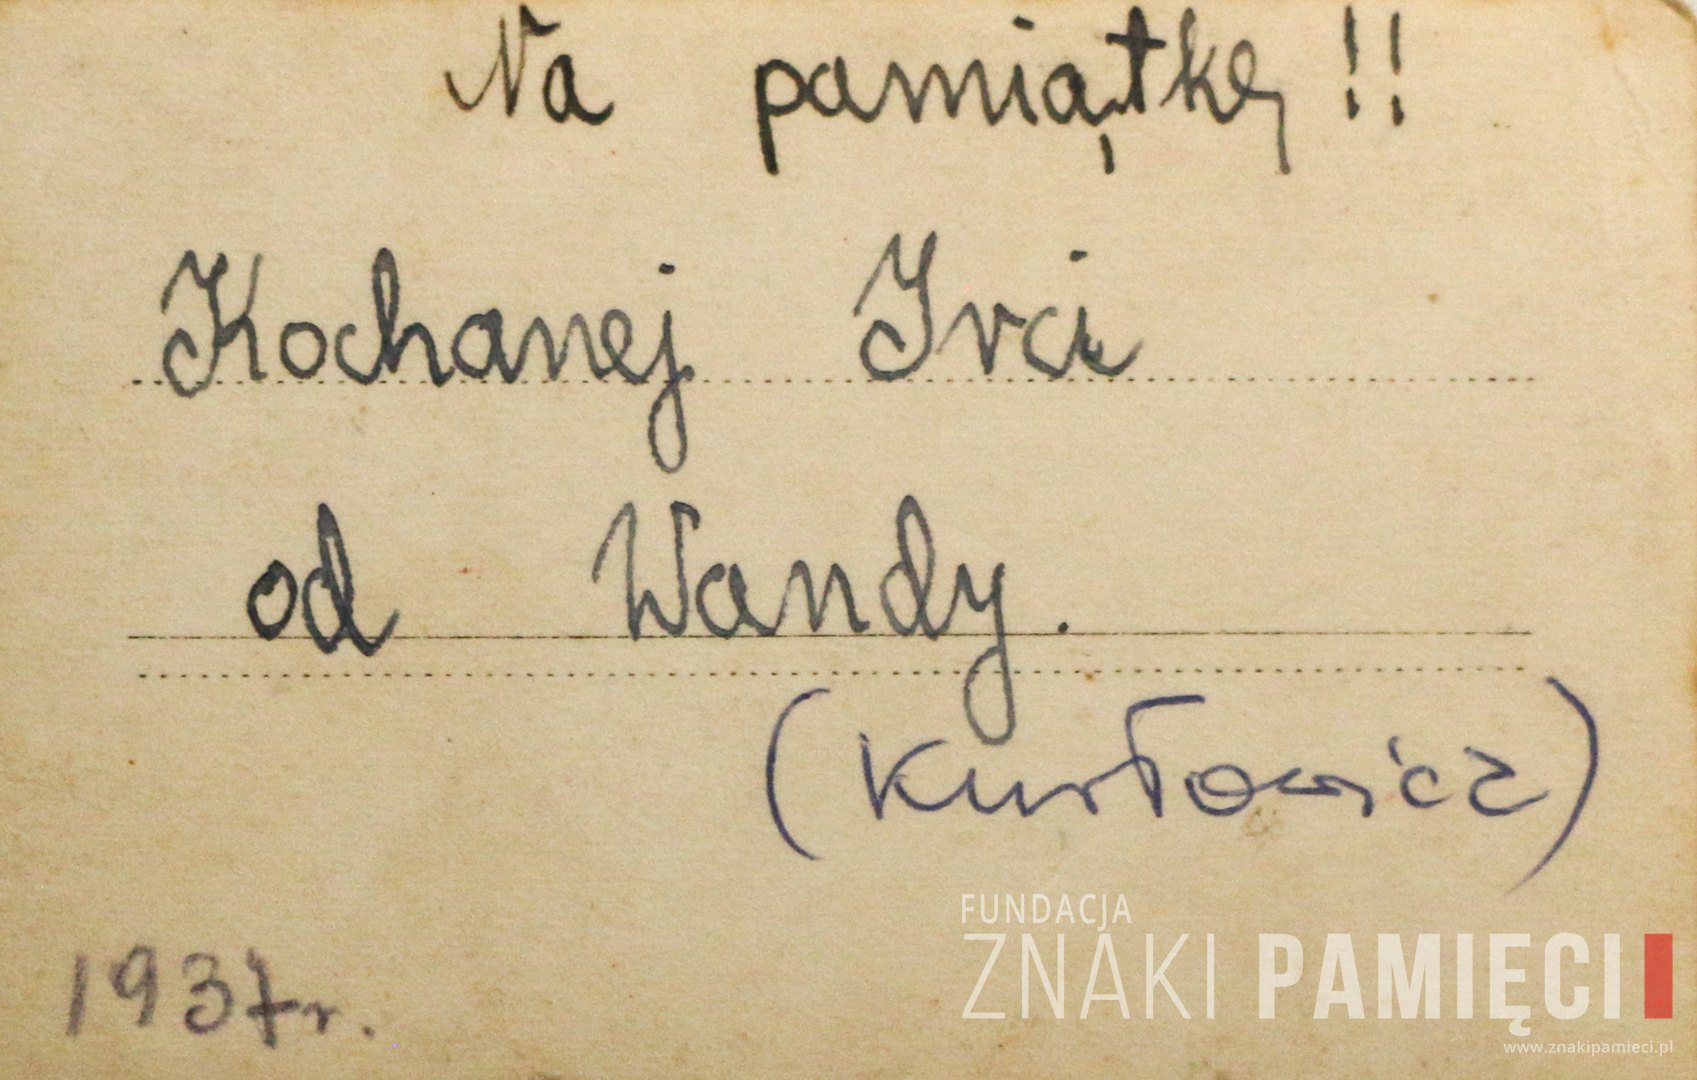 Na pamiątkę!!
Kochanej Irci
od Wandy.
(Kurłowicz)
1937r.
FUNDACJA
ZNAKI PAMIĘCI
www.znakipamieci.pl